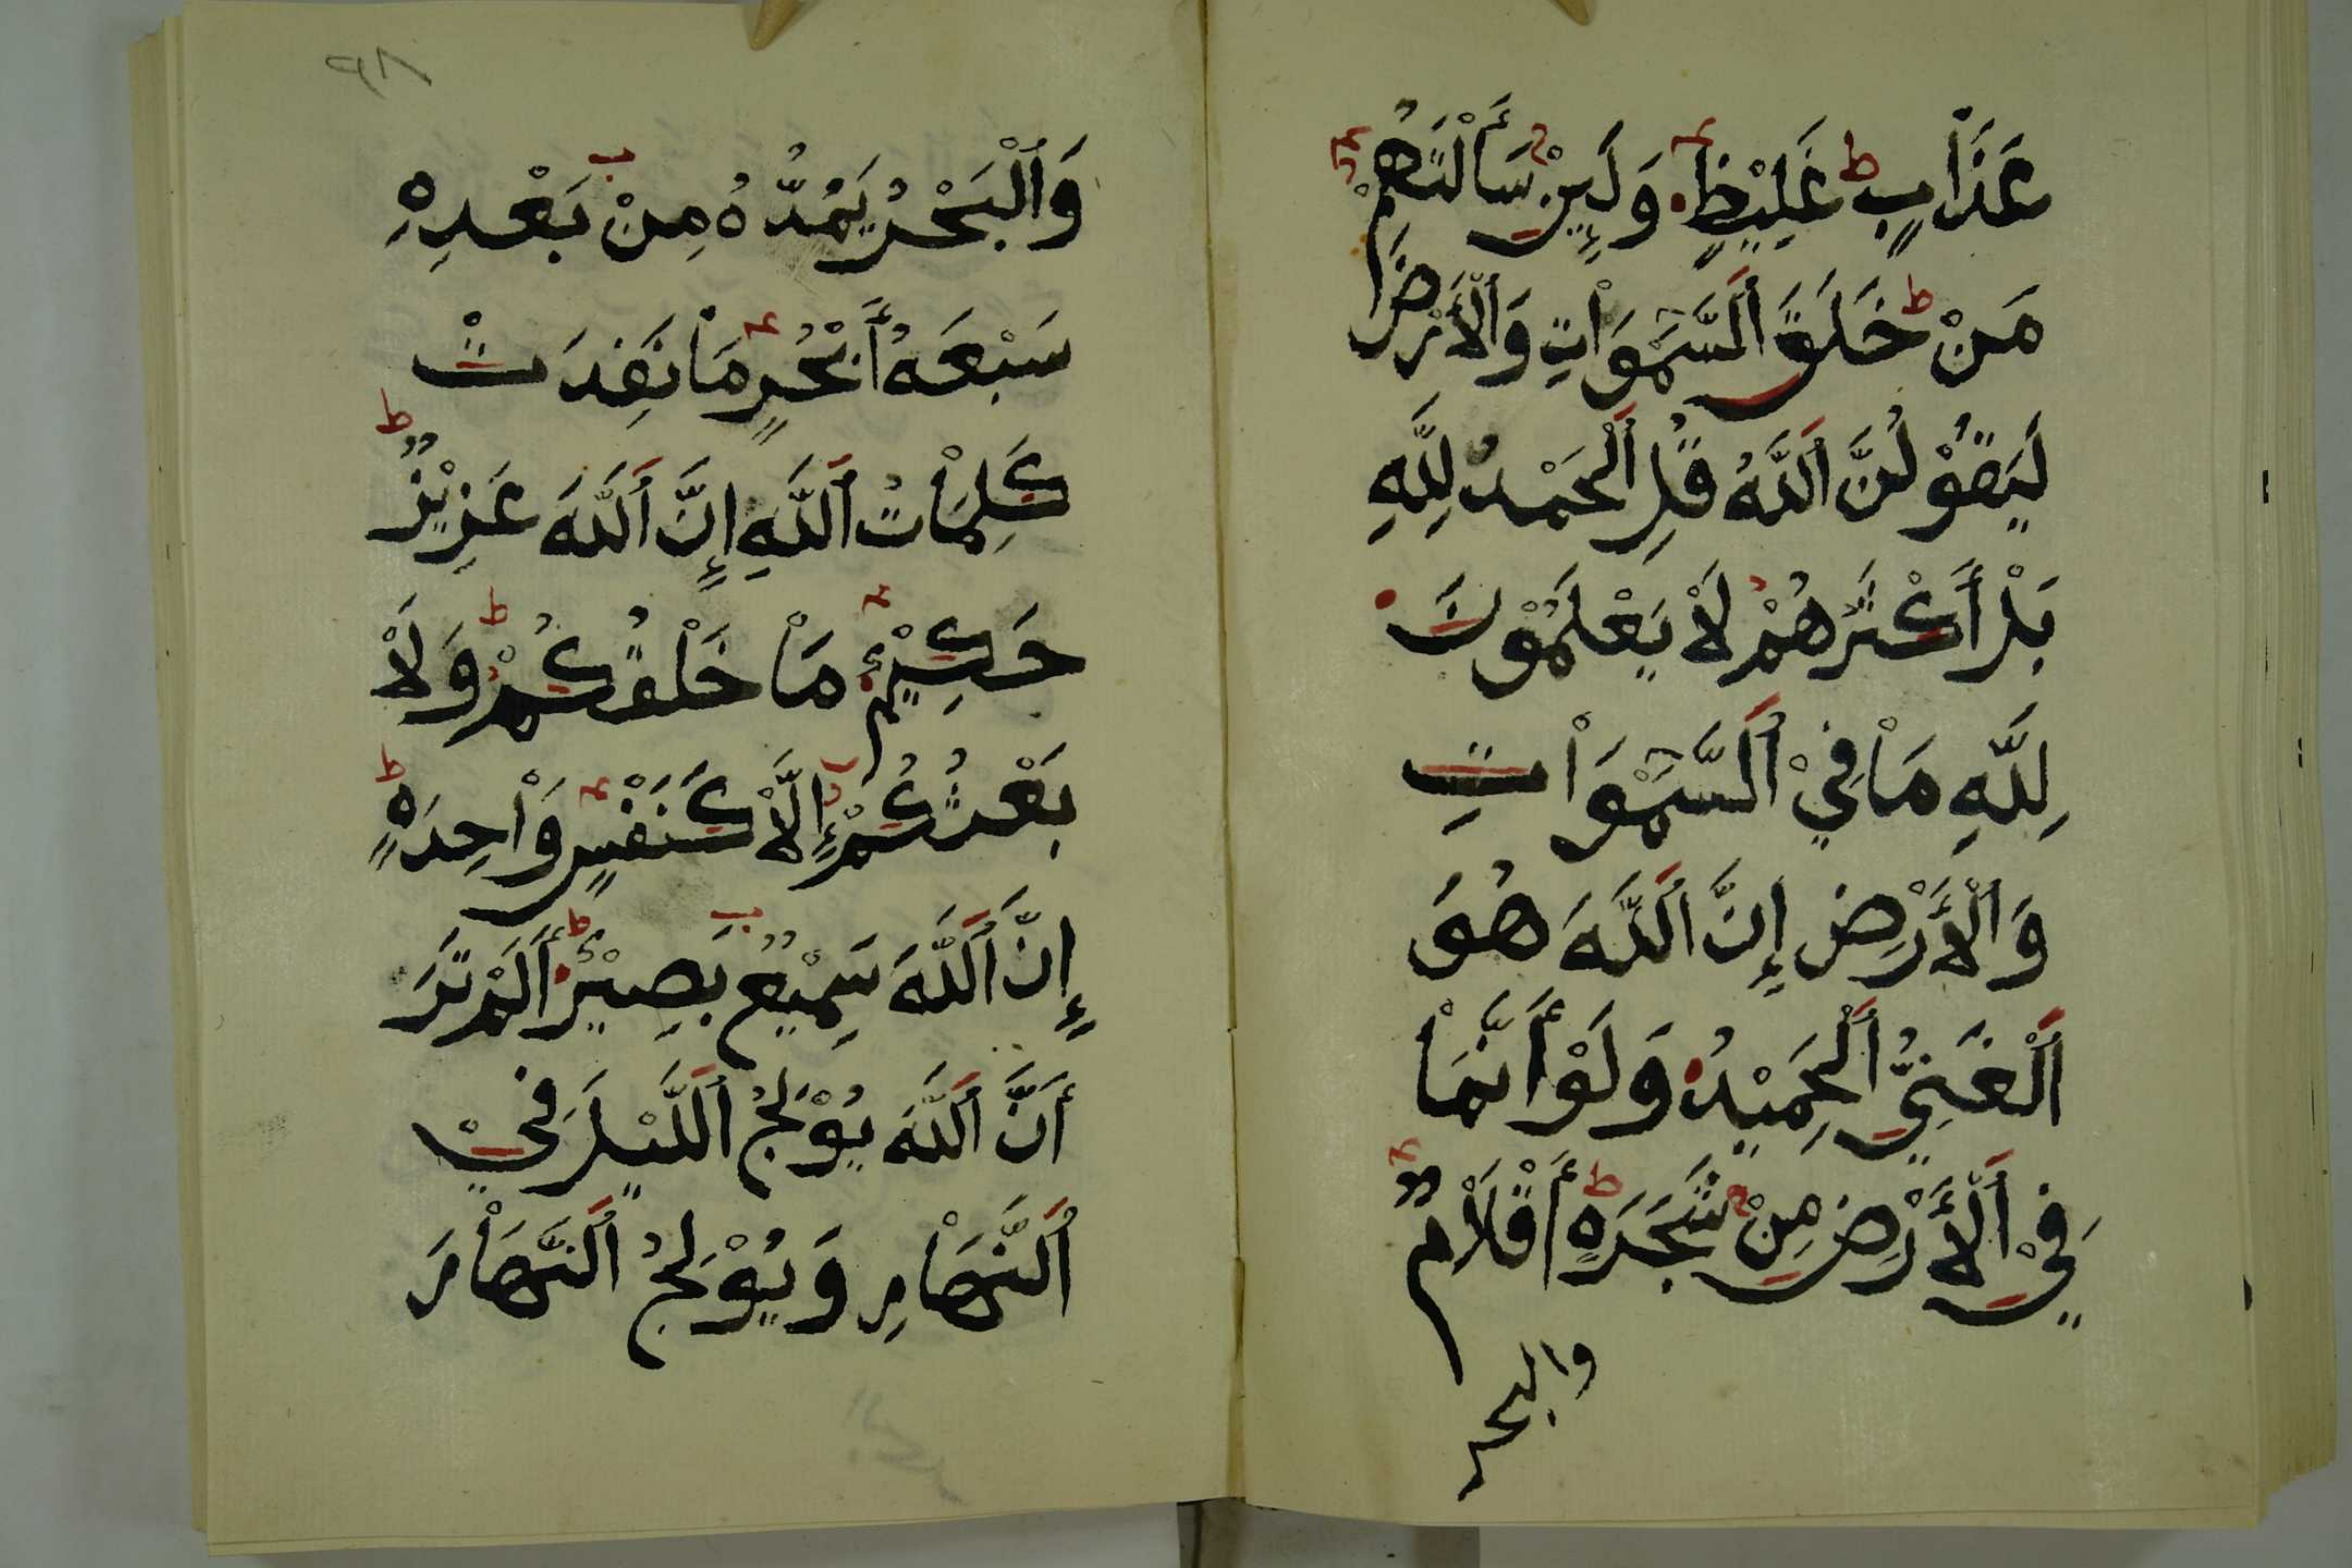 عَذَابٍ غَلِيْظٍ وَلَئِنْ سَأَلْتَهُمْ
مَنْ خَلَقَ ٱلسَّمَوَاتِ وَٱلْأَرْضَ
لَيَقُوْلُنَّ ٱللَّهُ قُلِ ٱلْحَمْدُ لِلَّهِ
بَلْ أَكْثَرُهُمْ لَاْ يَعْلَمُوْنَ
لِلَّهِ مَاْ فِيْ ٱلسَّمَوَاْتِ
وَٱلْأَرْضِ إِنَّ ٱللَّهَ هُوَ
ٱلْغَنِيُّ ٱلْحَمِيْدُ وَلَوْ أَنَّمَاْ
فِيْ ٱلْأَرْضِ مِنْ شَجَرَةٍ أَقْلَاْمٌ
والبحر
٩١٨
وَٱلْبَحْرُ يَمُدُّهُ مِنْ بَعْدِهِ
سَبْعَةُ أَبْحُرٍ مَاْ نَفِدَتْ
كَلِمَاْتُ ٱللَّهِ إِنَّ ٱللَّهَ عَزِيْزٌ
حَكِيْمٌ مَاْ خَلْقُكُمْ وَلَاْ
بَعْثُكُمْ إِلَّاْ كَنَفْسٍ وَاْحِدَةٍ
إِنَّ ٱللَّهَ سَمِيْعٌ بَصِيْرٌ أَلَمْ تَرَ
أَنَّ ٱللَّهَ يُوْلِجُ ٱللَّيْلَ فِيْ
ٱلنَّهَاْرِ وَيُوْلِجُ ٱلنَّهَاْرَ